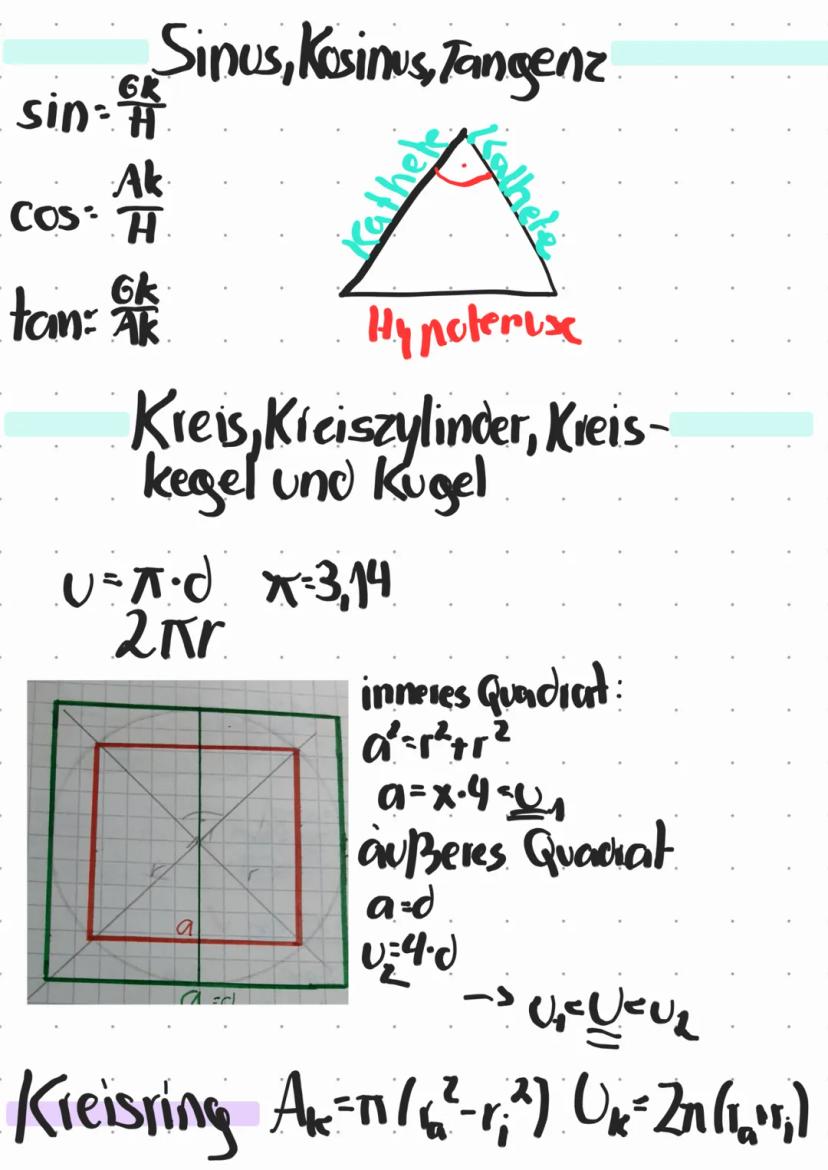 Sinus, Kosinus, Tangenz
sin = Gk/H
cos = Ak/H
tan = Gk/Ak
Kathete Kathete
Hypotenuse
Kreis, Kreiszylinder, Kreis-
kegel und Kugel
U = π·d π=3,14
2πr
inneres Quadrat:
a²=r²+r²
a=x·4=U₁
äußeres Quadrat
a=d
U₂=4·d
-> U₁<U<U₂
r r
a
a=d
Kreisring Aₖ=π(rₐ²-rᵢ²) Uₖ=2π(rₐ+rᵢ)